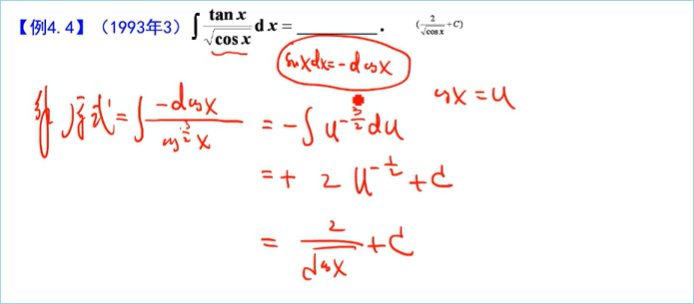 【例4.4】（1993年3）∫ tan x / √cos x dx = ________. (2/√cos x + C)
sinxdx = -dcosx
解 原式 = ∫ -dcosx / cos^(3/2) x = -∫ u^(-3/2) du    cosx = u
= + 2 u^(-1/2) + C
= 2/√cosx + C